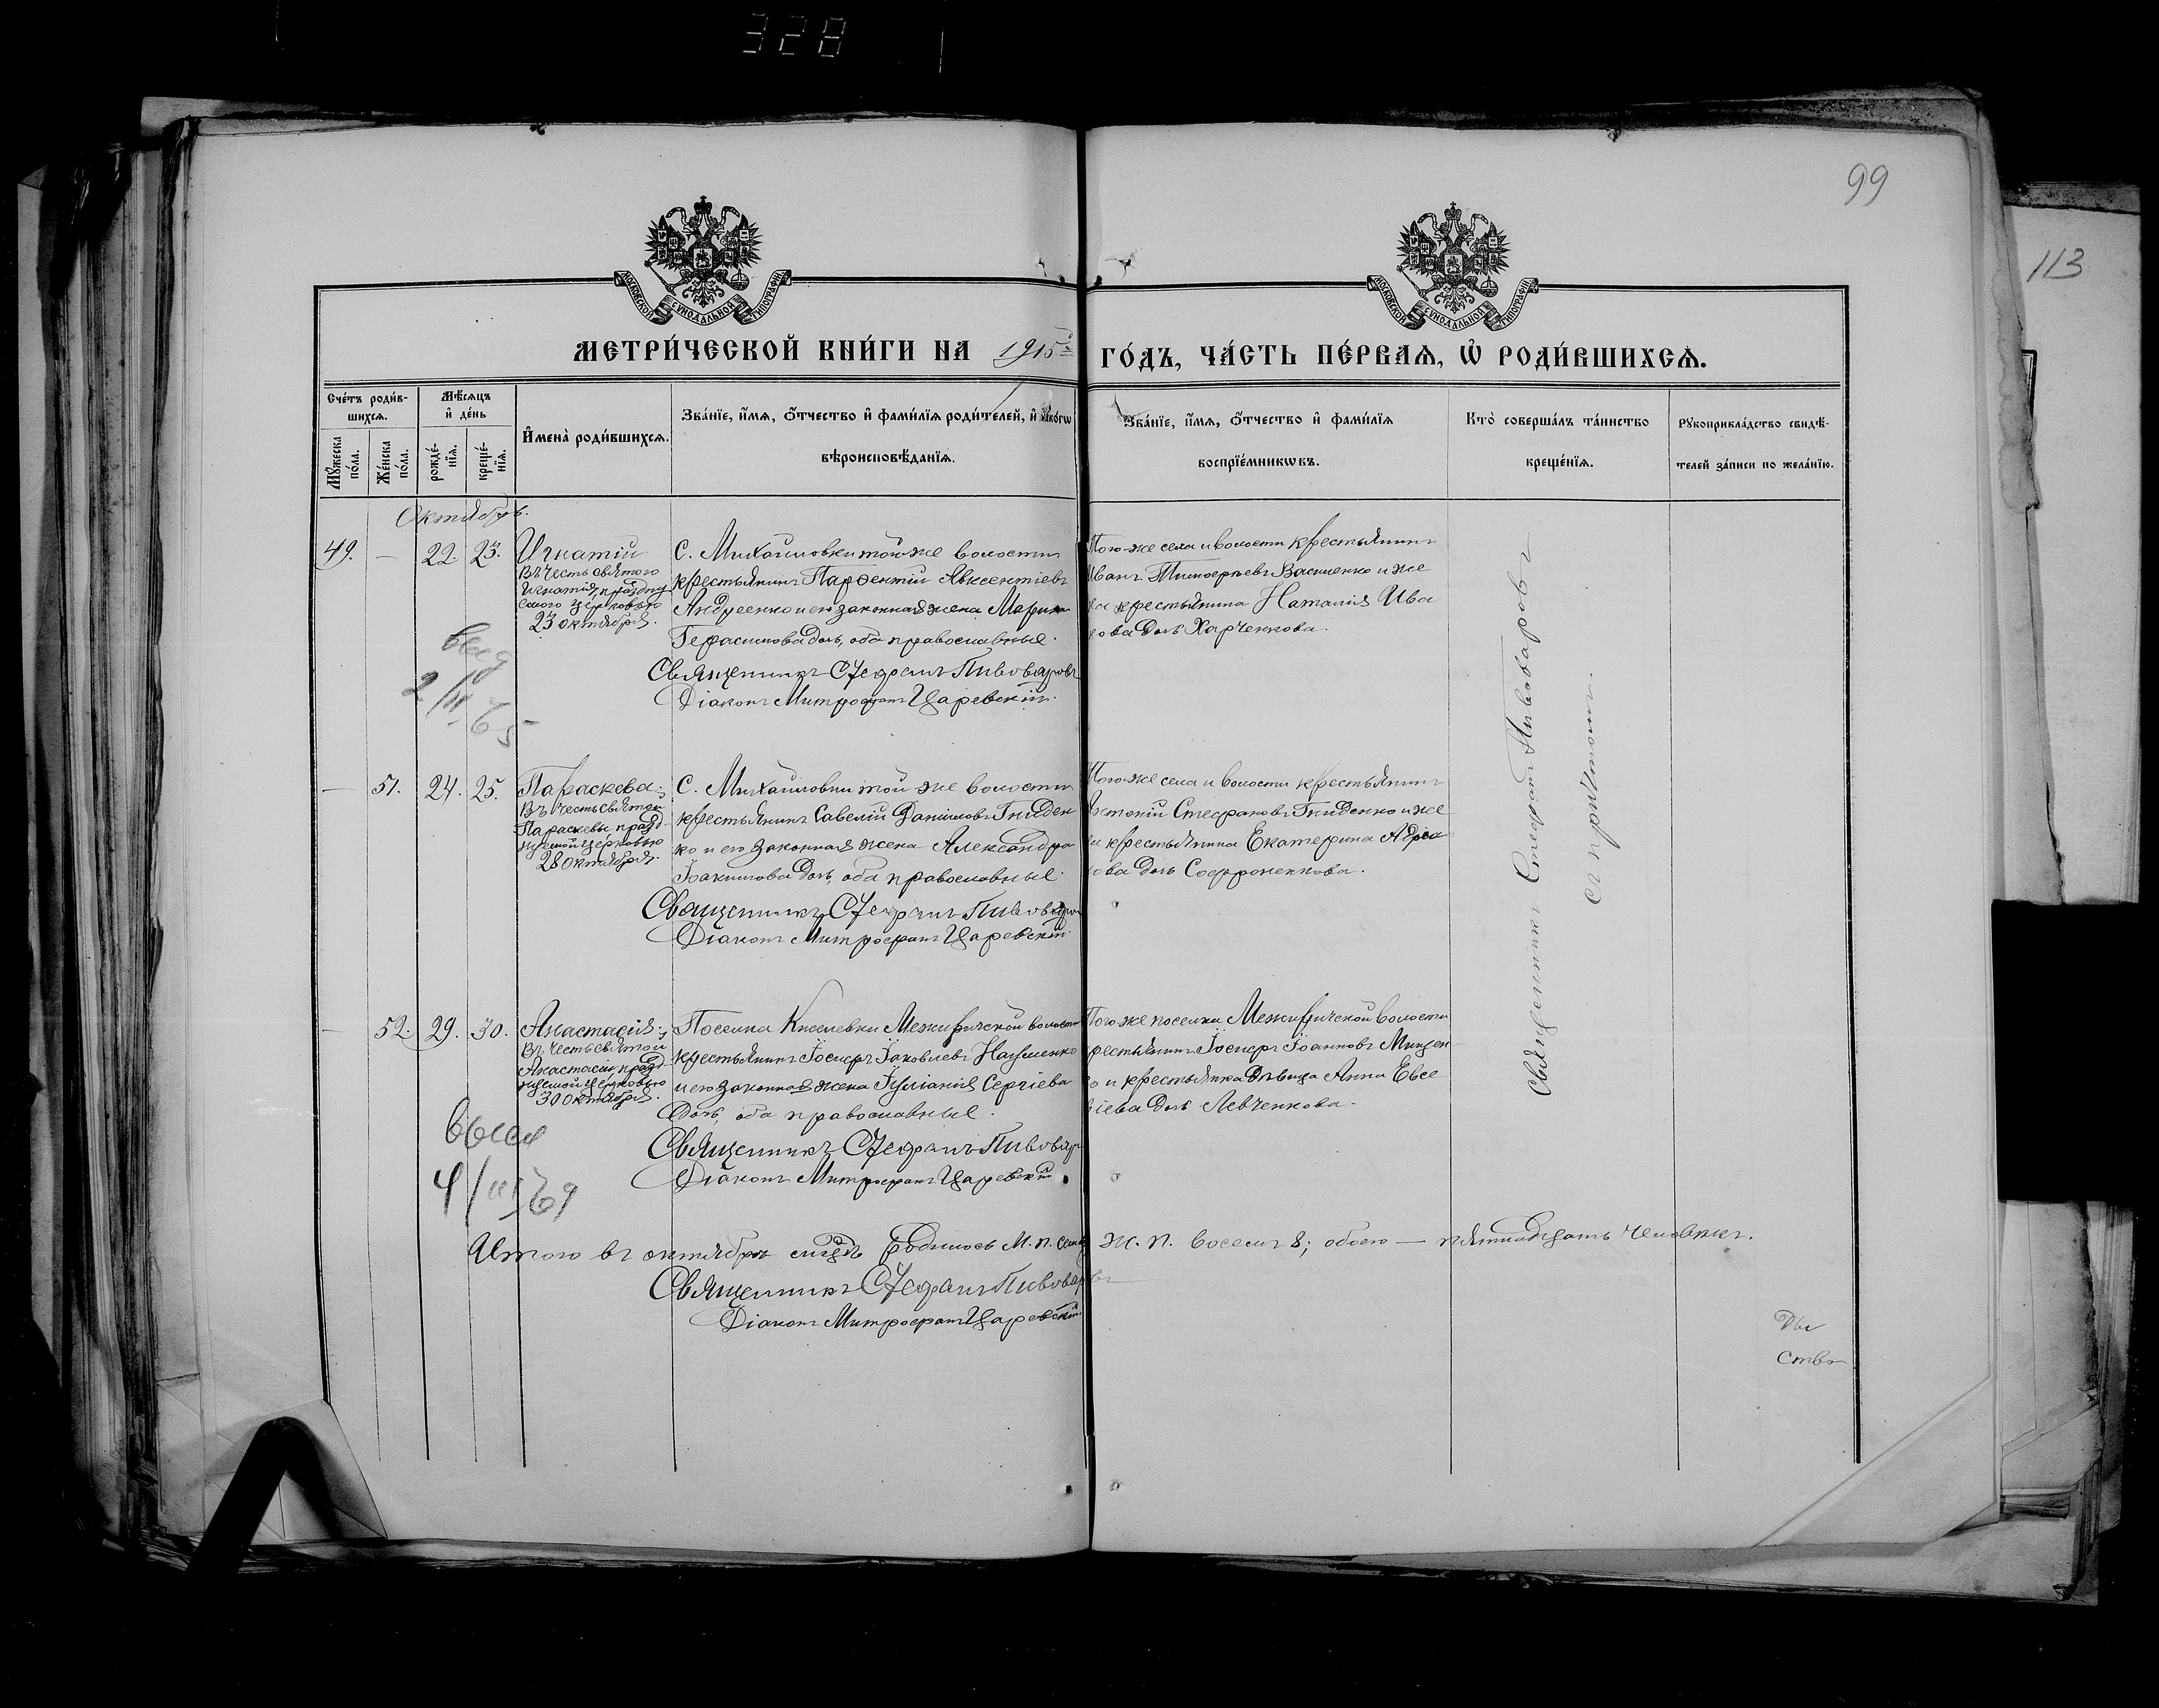 328
99
113
МОСКОВСКОЙ СУНОДАЛЬНОЙ ТИПОГРАФІИ
МОСКОВСКОЙ СУНОДАЛЬНОЙ ТИПОГРАФІИ
МЕТРИ́ЧЕСКОЙ КНИ́ГИ НА 1915 ГО́ДЪ, ЧА́СТЬ ПЕ́РВАѦ, Ѡ РОДИ́ВШИХСѦ.
Сче́тъ роди́вшихсѧ.
Мꙋ́жеска по́ла.
Же́нска по́ла.
Мѣ́сѧцъ и де́нь
рожде́нїѧ.
креще́нїѧ.
Имена̀ роди́вшихсѧ.
Зва́нїе, и́мѧ, о́тчество и фами́лїѧ роди́телей, и како́гѡ
вѣроисповѣ́данїѧ.
Зва́нїе, и́мѧ, о́тчество и фами́лїѧ
воспрїе́мникѡвъ.
Кто̀ соверша́лъ та́инство
креще́нїѧ.
Рꙋкоприкла́дство свидѣ́-
телей за́писи по жела́нїю.
Октябрь.
49. — 22. 23. Игнатій
въ честь святого
Игнатія, праздну
емаго церковью
23 октября.
С. Михайловки той же волости
крестьянинъ Парѳентій Авксентіевъ
Андреенко и его законная жена Марина
Герасимова дочь, оба православные.
Священникъ Стефанъ Пивоваровъ
Діаконъ Митрофанъ Царевскій.
Того-же села и волости крестьянинъ
Иванъ Тимоѳеевъ Василенко и же
на крестьянина Наталія Ива
нова дочь Харченкова.
выд
2/III 65
— 51. 24. 25. Параскева:
въ честь святой
Параскевы, празд-
нуемой церковью
28 октября.
С. Михайловки той же волости
крестьянинъ Савелій Даниловъ Гниден
ко и его законная жена Александра
Іоакимова дочь, оба православные.
Священникъ Стефанъ Пивоваров
Діаконъ Митрофанъ Царевскій.
Того-же села и волости крестьянинъ
Антоній Стефановъ Гниденко и же
на крестьянина Екатерина
дочь Софроненкова.
— 52. 29. 30. Анастасія:
въ честь святой
Анастасіи, празд-
нуемой церковью
30 октября.
Поселка Киселевки Межиричской волости
крестьянинъ Іосифъ Іаковлевъ Науменко
и его законная жена Іуліанія Сергіева
дочь, оба православные.
Священникъ Стефанъ Пивовар
Діаконъ Митрофанъ Царевскій
Того же поселка Межиричской волости
крестьянинъ Іосифъ Іоанновъ Мищен
ко и крестьянка дѣвица Анна Евсе
віева дочь Левченкова.
4/III 69
Священникъ Стефанъ Пивоваровъ
съ причтомъ.
Итого въ октябрѣ мѣсяцѣ родилось м. п. семь ж. п. восемь 8; обоего — пятнадцать человѣкъ.
Священникъ Стефанъ Пивоваровъ
Діаконъ Митрофанъ Царевскій